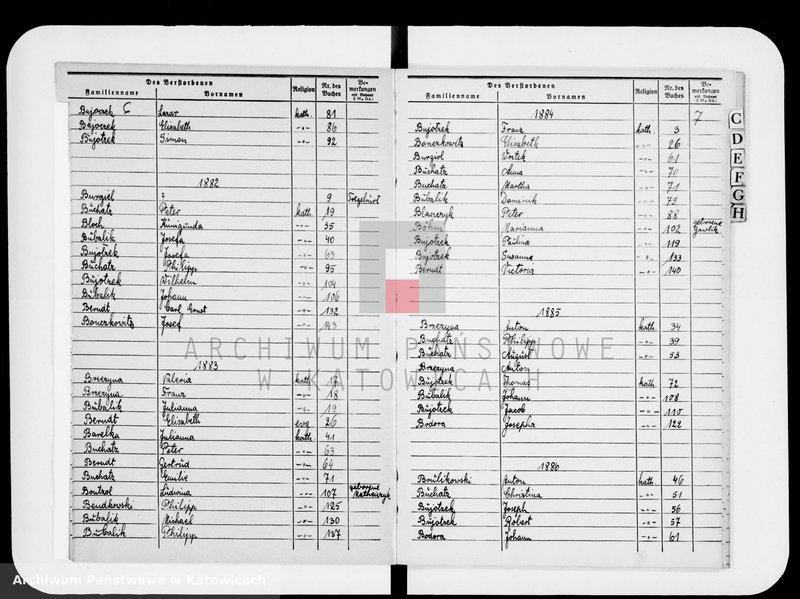 Des Verstorbenen
Familienname Vornamen Religion Nr. des Buches Bemerkungen
Bujoczek Lazar kath. 81
Bujoczek Elisabeth -"- 86
Bujotzek Simon -"- 92
1882
Burgiel ? 9 Totgeburt
Buchatz Peter kath 19
Bloch Kunigunda -"- 35
Bubalik Josefa -"- 40
Bujotzek Josefa -"- 63
Buchatz Philipp -"- 95
Bujotzek Wilhelm -"- 104
Bubalik Johann -"- 106
Berndt Carl Ernst -"- 132
Bonczkowitz Josef -"- 143
1883
Brzezyna Valeria kath 17
Brzezyna Franz -"- 18
Bubalik Julianna -"- 19
Berndt Elisabeth evg 26
Barelka Julianna kath 41
Buchatz Peter -"- 63
Berndt Gertrud -"- 64
Buchatz Emilie -"- 71
Bontrol Ludwina -"- 107 geborene
Bendkowski Philipp -"- 125
Bubalik Michael -"- 130
Bubalik Philipp -"- 137
Des Verstorbenen
Familienname Vornamen Religion Nr. des Buches Bemerkungen
1884
7
Bujotzek Franz kath. 3
Bonczkowitz Elisabeth -"- 26
Burgiol Wojtek -"- 61
Buchatz Anna -"- 70
Buchatz Martha -"- 71
Bubalik Dominik -"- 79
Blasczyk Peter -"- 88
Böhm Marianna -"- 102 geborene Gawlik
Bujotzek Paulina -"- 119
Bujotzek Susanna -"- 133
Berndt Victoria -"- 140
1885
Brzezyna Anton kath 34
Buchatz Philipp -"- 39
Buchatz August -"- 53
Brzezyna Anton
Bujotzek Thomas kath 72
Bubalik Johann -"- 108
Bujotzek Jacob -"- 110
Bodora Josepha -"- 122
1886
Brulikowski Anton kath 46
Buchatz Christina -"- 51
Bujotzek Joseph -"- 56
Bujotzek Robert -"- 57
Bodora Johann -"- 61
C
D
E
F
G
H
ARCHIWUM PAŃSTWOWE
W KATOWICACH
Archiwum Państwowe w Katowicach